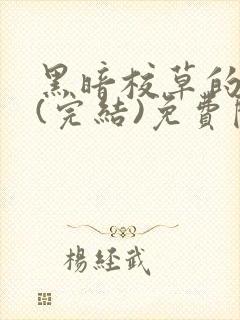 黑暗校草的
(完結)免費
楊經武